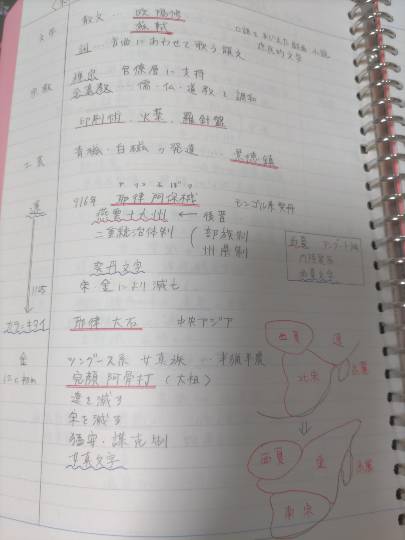 文学 散文… 欧陽脩
蘇軾
口語をまじえた戯曲 小説
庶民的文学
詞…音曲にあわせて歌う韻文
宗教 禅宗 官僚層に支持
全真教… 儒・仏・道教を調和
印刷術、火薬、羅針盤
工芸 青磁・白磁の発達 … 景徳鎮
遼 916年 耶律阿保機 モンゴル系契丹
燕雲十六州 ← 後晋
二重統治体制 部族制
州県制
契丹文字
宋・金により滅亡
西夏
西夏文字
1125
カラキタイ 耶律大石 中央アジア
金 ツングース系 女真族 … 半猟半農
12C初め 完顔阿骨打 (太祖)
遼を滅す
宋を滅す
猛安・謀克制
女真文字
西夏 遼
北宋 高麗
西夏 金
高麗
南宋